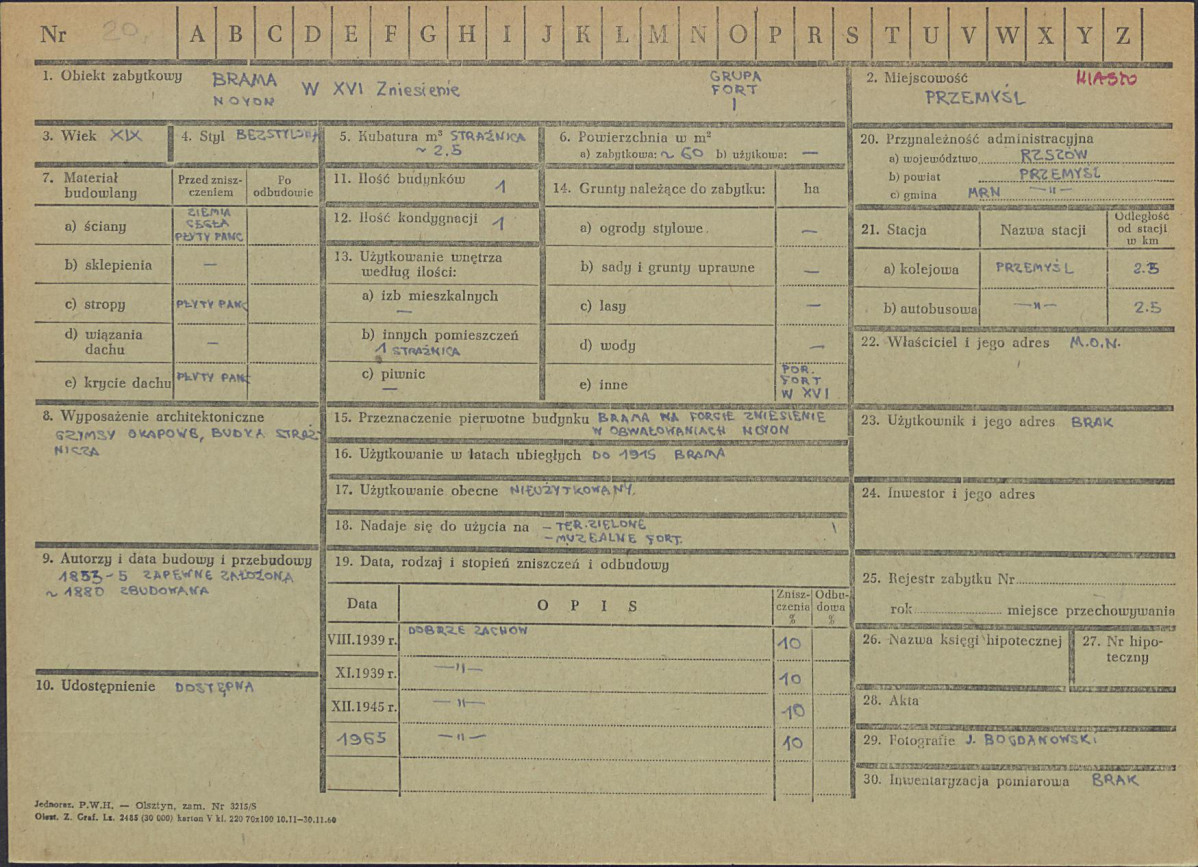 Nr 20. A B C D E F G H I J K L Ł M N O P R S T U V W X Y Z
1. Obiekt zabytkowy BRAMA W XVI Zniesienie GRUPA
NOYON FORT
I
2. Miejscowość MIASTO
PRZEMYŚL
3. Wiek XIX
4. Styl BEZSTYLOWA
5. Kubatura m³ STRAŻNICA
~ 2.5
6. Powierzchnia w m²
a) zabytkowa: ~ 60 b) użytkowa: —
20. Przynależność administracyjna
a) województwo RZSZÓW
b) powiat PRZEMYŚL
c) gmina MRN —"—
7. Materiał budowlany
Przed znisz-
czeniem
Po
odbudowie
a) ściany ZIEMIA
CEGŁA
PŁYTY PANC
b) sklepienia —
c) stropy PŁYTY PANC
d) wiązania
dachu —
e) krycie dachu PŁYTY PANC
11. Ilość budynków 1
12. Ilość kondygnacji 1
13. Użytkowanie wnętrza
według ilości:
a) izb mieszkalnych
—
b) innych pomieszczeń
1 STRAŻNICA
c) piwnic
—
14. Grunty należące do zabytku: ha
a) ogrody stylowe —
b) sady i grunty uprawne —
c) lasy —
d) wody —
e) inne POR.
FORT
W XVI
21. Stacja Nazwa stacji Odległość
od stacji
w km
a) kolejowa PRZEMYŚL 2.5
b) autobusowa —"— 2.5
22. Właściciel i jego adres M.O.N.
8. Wyposażenie architektoniczne
GZYMSY OKAPOWE, BUDKA STRAŻ-
NICZA
15. Przeznaczenie pierwotne budynku BRAMA NA FORCIE ZNIESIENIE
W OBWAŁOWANIACH NOYON
16. Użytkowanie w latach ubiegłych DO 1915 BRAMA
17. Użytkowanie obecne NIEUŻYTKOWANY.
18. Nadaje się do użycia na – TER. ZIELONE
– MUZEALNE FORT.
23. Użytkownik i jego adres BRAK
24. Inwestor i jego adres
9. Autorzy i data budowy i przebudowy
1853-5 ZAPEWNE ZAŁOŻONA
~ 1880 ZBUDOWANA
10. Udostępnienie DOSTĘPNA
19. Data, rodzaj i stopień zniszczeń i odbudowy
Data OPIS Znisz-
czenia
% Odbu-
dowa
%
VIII.1939 r. DOBRZE ZACHOW 10
XI.1939 r. —"— 10
XII.1945 r. —"— 10
1965 —"— 10
25. Rejestr zabytku Nr
rok miejsce przechowywania
26. Nazwa księgi hipotecznej
27. Nr hipo-
teczny
28. Akta
29. Fotografie J. BOGDANOWSKI
30. Inwentaryzacja pomiarowa BRAK
Jednoraz. P.W.H. — Olsztyn, zam. Nr 3215/S
Olszt. Z. Graf. Lz. 2485 (30 000) karton V kl. 220 70x100 10.11—30.11.60